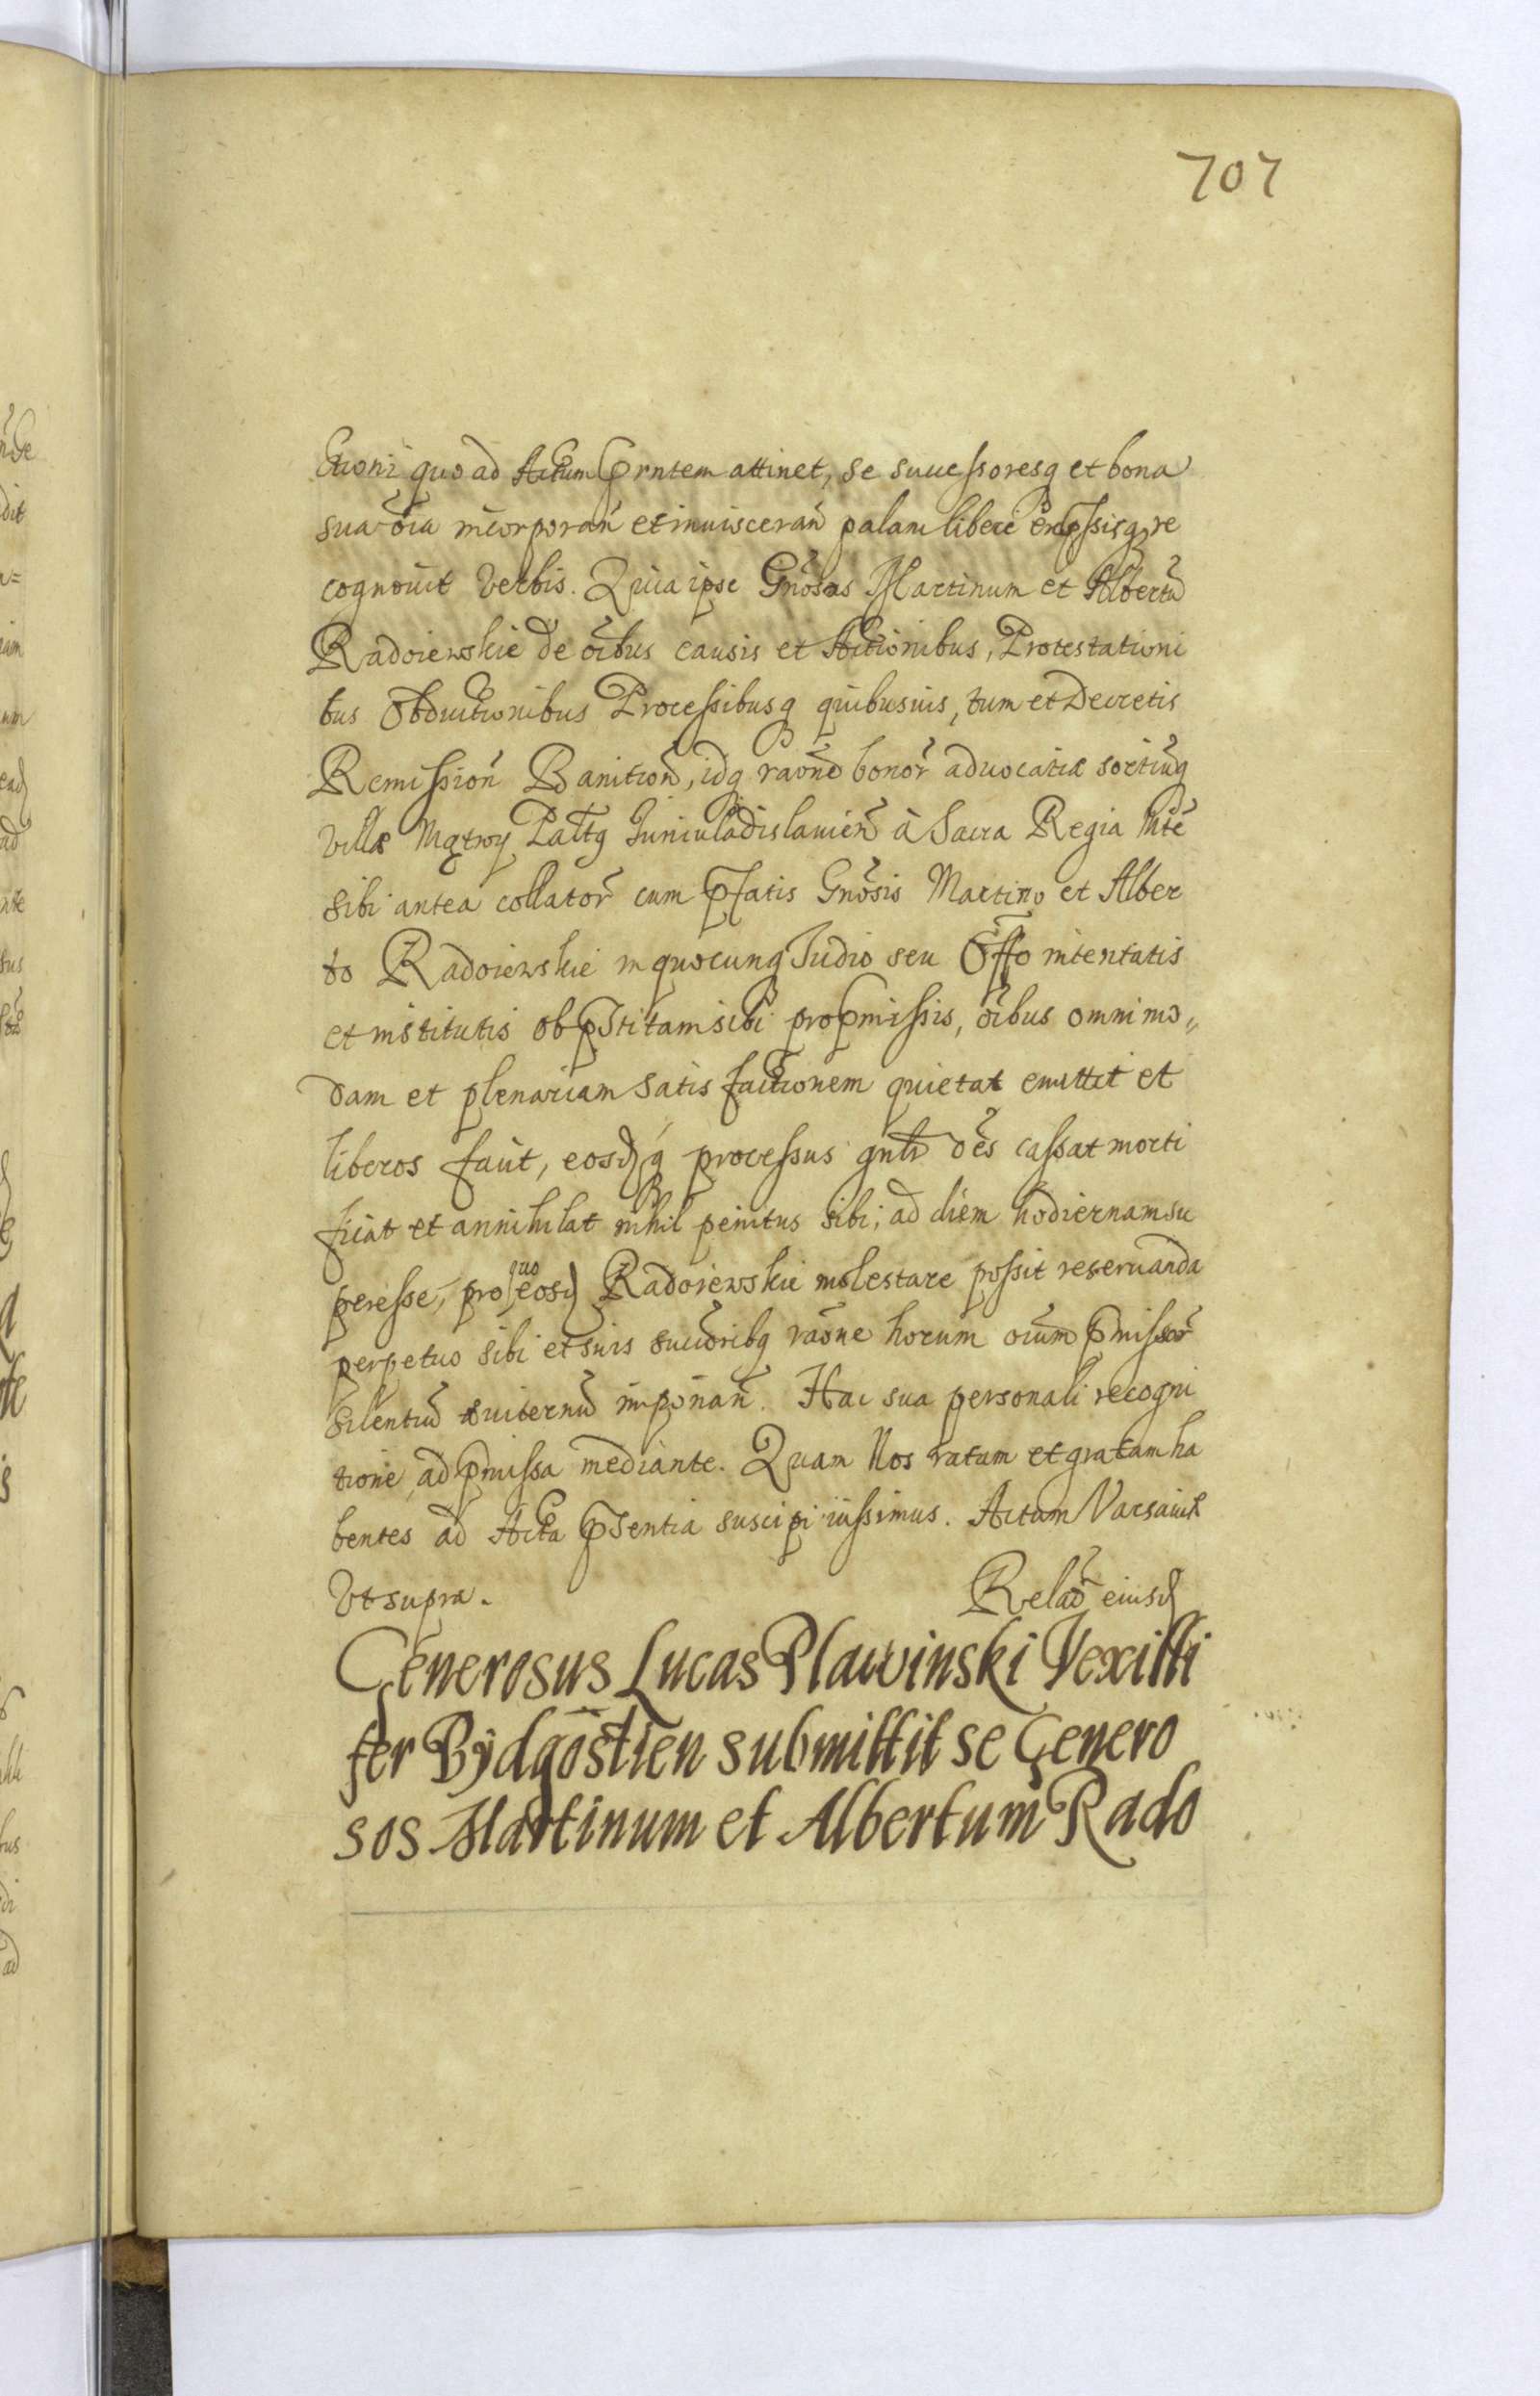 707
ctioni quo ad Actum prntem attinet, se successoresq et bona
sua oĩa incorporañ et inuisceran palam libere expssisq re
cognouit verbis. Quia ipse Gnosos Martinum et Albertũ
Radoiewskie de oĩbus causis et Actionibus, Protestationi
bus Obductionibus Processibusq quibusuis, tum et Decretis
Remission Banition, idq raõne bonor aduocatiæ sortiũq
villæ Mątwy Palttq Juniuladislauien à Sacra Regia Mtẽ
sibi antea collator cum pfatis Gnosis Martino et Alber
to Radoiewskie in quocunq Judio seu Offo intentatis
et institutis ob pstitam sibi pro pmissis, oĩbus omnimo„
dam et plenariam satisfactionem quietat emittit et
liberos facit, eosdq processus gnlr oẽs cassat morti
ficat et annihilat nihil penitus sibi, ad diem hodiernam su
peresse, pro quo eosd Radoiewskie molestare possit reseruanda
perpetuo sibi et suis succoribq raõne horum oĩum pmissor
silentiũ euiternũ imponañ. Hac sua personali recogni
tione ad pmissa mediante. Quam Nos ratam et gratam ha
bentes ad Acta psentia suscipi iussimus. Actum Varsauiæ
Vt supra. Relaõ eiusd
Generosus Lucas Plawinski Vexilli
fer Bydgostien submittit se Genero
sos Martinum et Albertum Rado